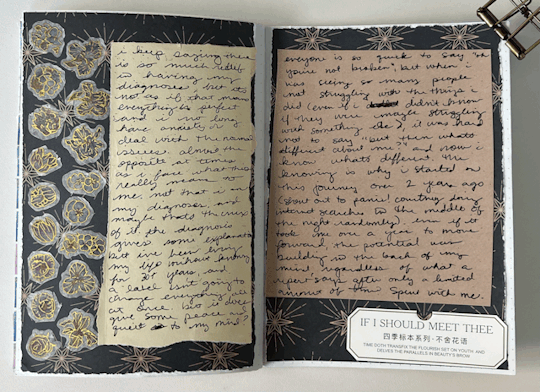 i keep saying there
is so much relief
in having my
diagnoses, but its
not as if that makes
everything perfect
and i no longer
have anxiety or
deal with the normal
issues. almost the
opposite at times
as i face what this
really means to
me. not that i am
my diagnoses, and
maybe thats the crux
of it. the diagnosis
gives some explanation
but ive been living
my life without knowing
for 37 years, and
a label isnt going to
change everything all
at once. but it does
give some peace and
quiet to my mind?
everyone is so quick to say "oh
you're not broken", but when i
was seeing so many people
not struggling with the things i
did (even if i didn't know
if they were maybe struggling
with something else), it was hard
not to say "but then whats
different about me?" and now i
know whats different. the
knowing is why i started on
this journey over 2 years ago
(shout out to panic! courtney doing
internet searches in the middle of
the night randomly). even if it
took me over a year to move
forward, the potential was
building in the back of my
mind, regardless of what a
expert says after only a limited
amount of time spent with me.
IF I SHOULD MEET THEE
四季标本系列·不舍花语
TIME DOTH TRANSFIX THE FLOURISH SET ON YOUTH AND
DELVES THE PARALLELS IN BEAUTY'S BROW